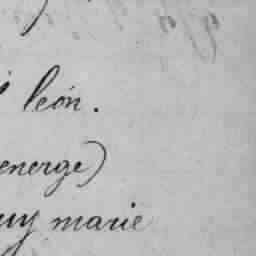 léon.
energe)
uy marie